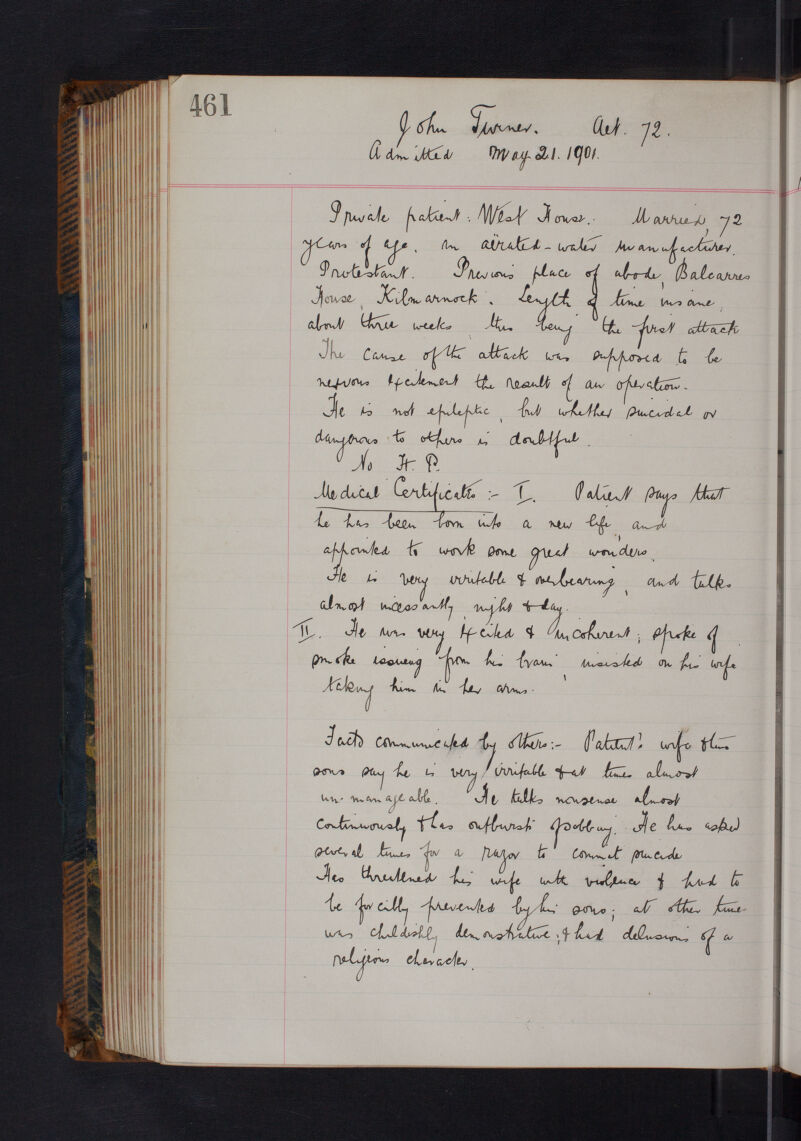 461
John Turner. Aet. 72.
Admitted May 21. 1901.
Private patient: West House. Married, 72
years of age. An aërated-water manufacturer.
Protestant. Previous place of abode, Balcarres
House, Kilmarnock. Length of time insane,
about three weeks, this being the first attack
The cause of the attack was supposed to be
nervous excitement the result of an operation.
He is not epileptic, but whether suicidal or
dangerous to others is doubtful.
No H. P.
Medical Certificates :- I. Patient says that
he has been born into a new life, and
appointed to work some great wonders.
He is very irritable & overbearing, and talks
almost incessantly, night & day.
II. He was very excited & incoherent; spoke of
smoke issuing from his brain, insisted on his wife
taking him in her arms.
Facts communicated by others:- Patient's wife &
sons say he is very irritable & at times almost
un-manageable. He talks nonsense almost
continuously & has outbursts of sobbing. He has asked
several times for a razor to commit suicide
Has threatened his wife with violence & had to
be forcibly prevented by his sons; at other time
was childishly demonstrative; & had delusions of a
religious character.